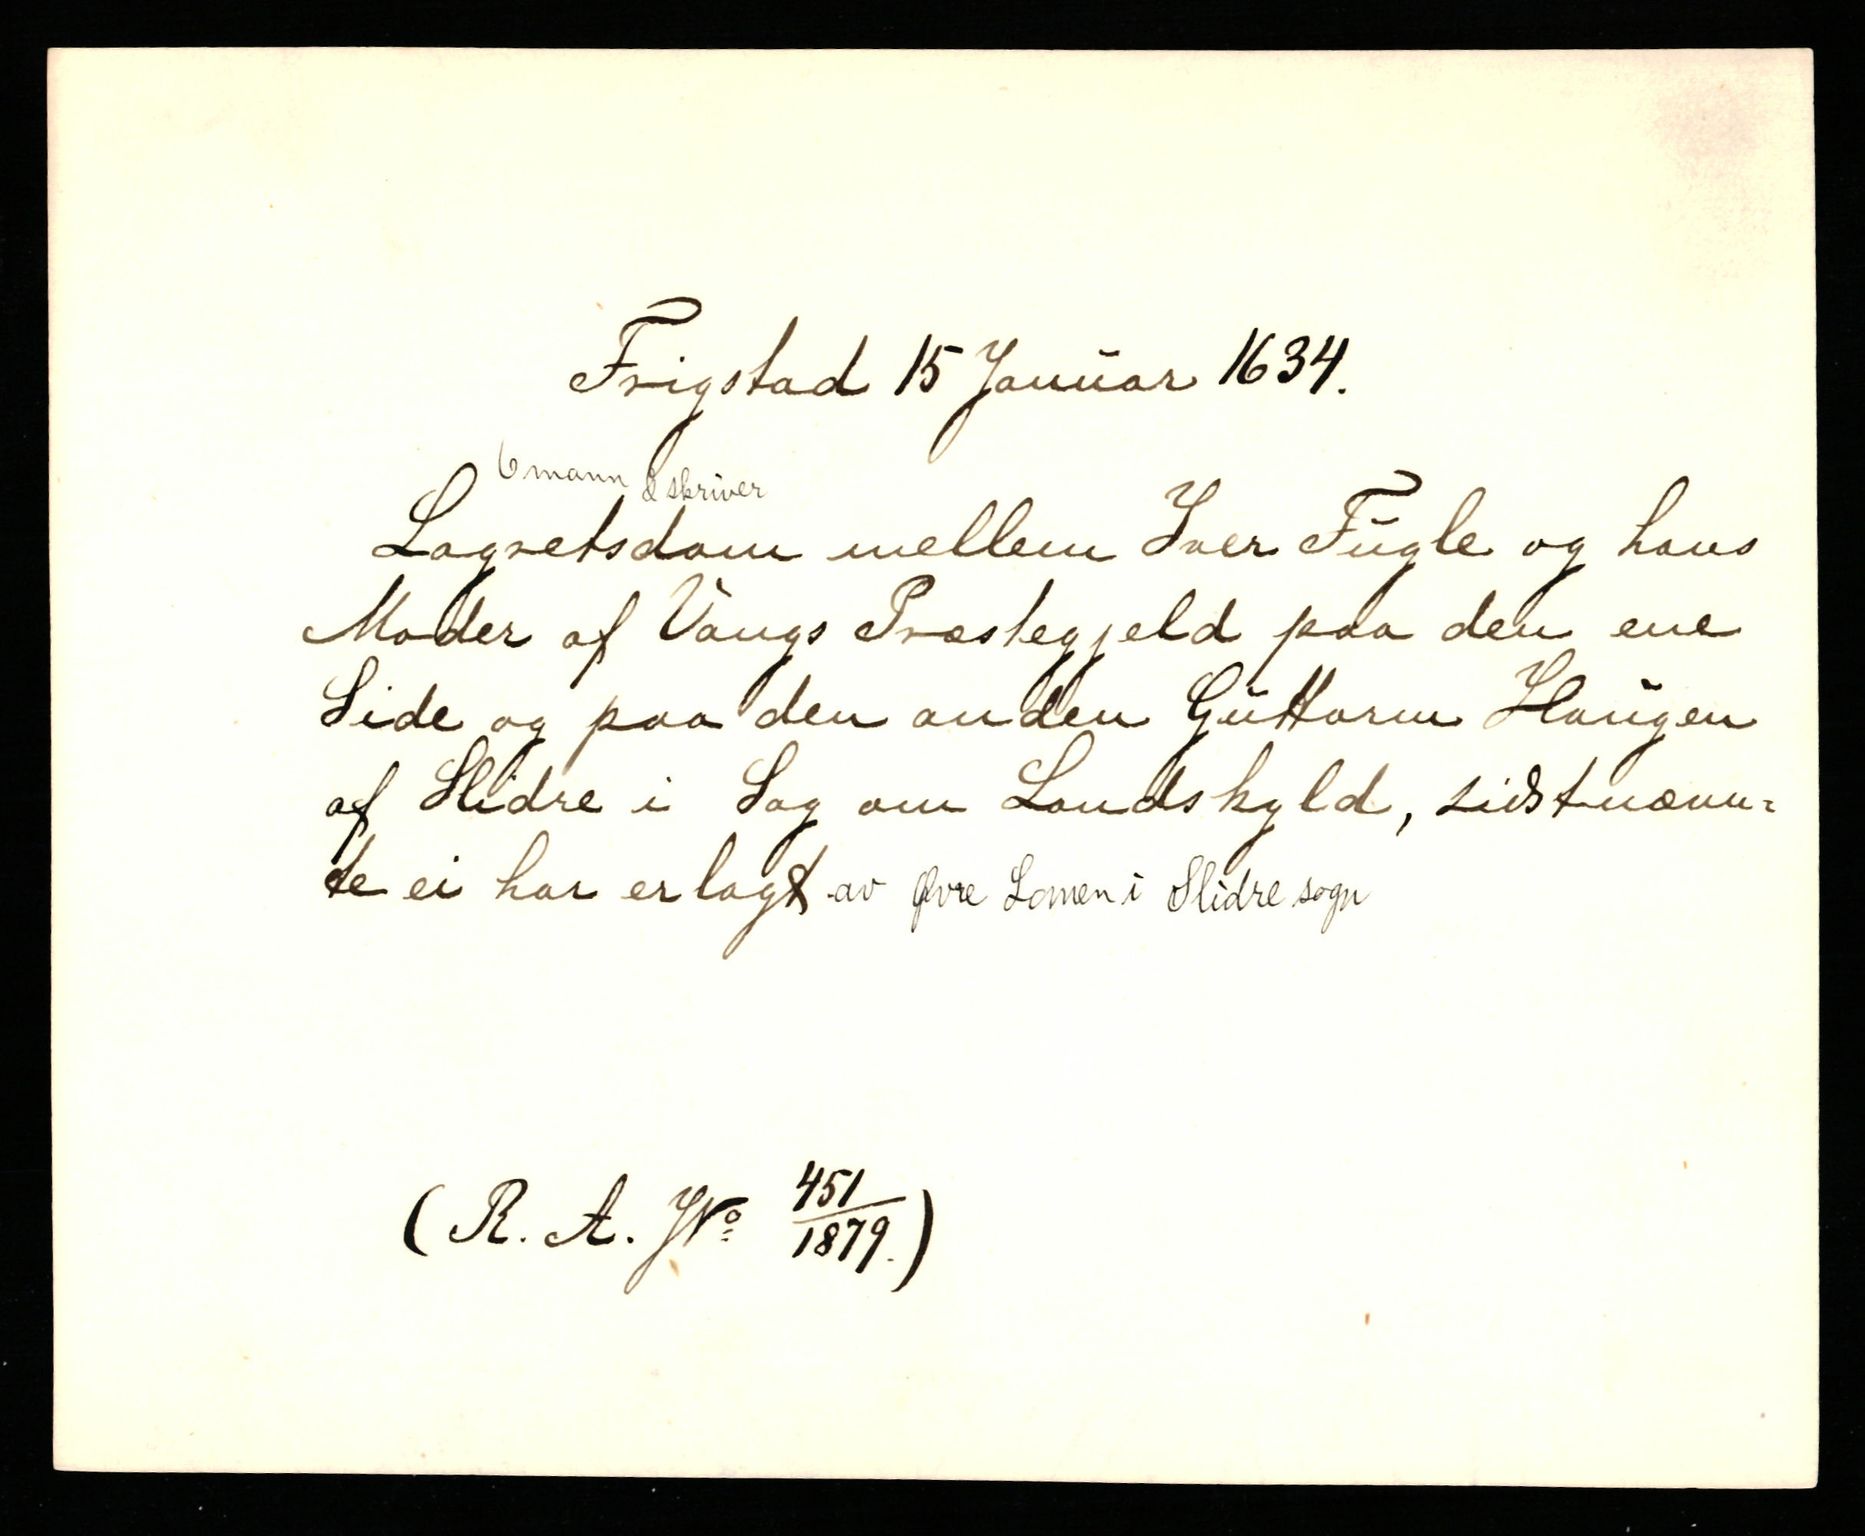 Frigstad 15 Januar 1634.
6 mann & skriver
Lagretsdom mellem Iver Fugle og hans
Moder af Vangs Præstegjeld paa den ene
Side og paa den anden Guttorm Haugen
af Slidre i Sag om Landskyld, sidstnævn=
te ei har erlagt av Øvre Lomen i Slidre sogn
(R. A. No 451/1879.)